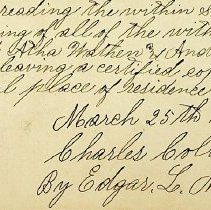 reading the within s
ing of all of the with
Atha Wathen & And
leaving a certified co
l place of residence
March 25th
Charles Col
By Edgar. L.